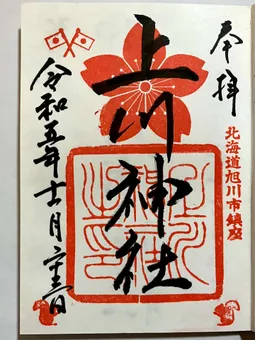 奉拝
北海道旭川市鎮座
上川神社
令和五年十一月二十三日